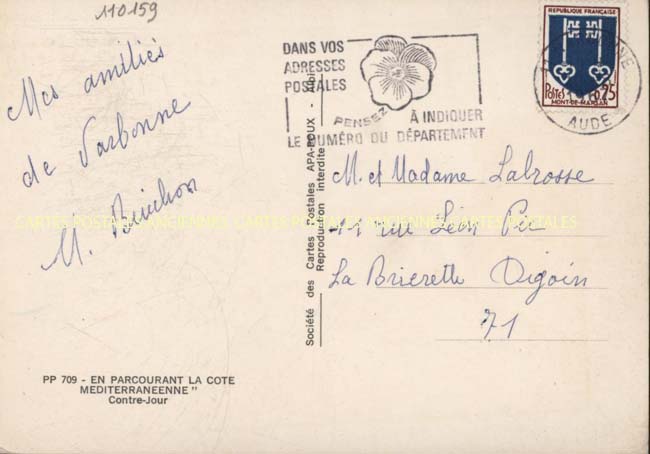 110159
Mes amitiés
de Narbonne
M.
PP 709 - EN PARCOURANT LA COTE
MEDITERRANEENNE "
Contre-Jour
Société des Cartes Postales APA-POUX - Albi
Reproduction interdite
DANS VOS
ADRESSES
POSTALES
PENSEZ
À INDIQUER
LE NUMÉRO DU DÉPARTEMENT
REPUBLIQUE FRANÇAISE
POSTES 0,25
MONT-DE-MARSAN
AUDE
M. et Madame Labrosse
11 rue Léon Pic
La Brierette Digoin
71
CARTES POSTALES ANCIENNES CARTES POSTALES ANCIENNES CARTES POSTALES